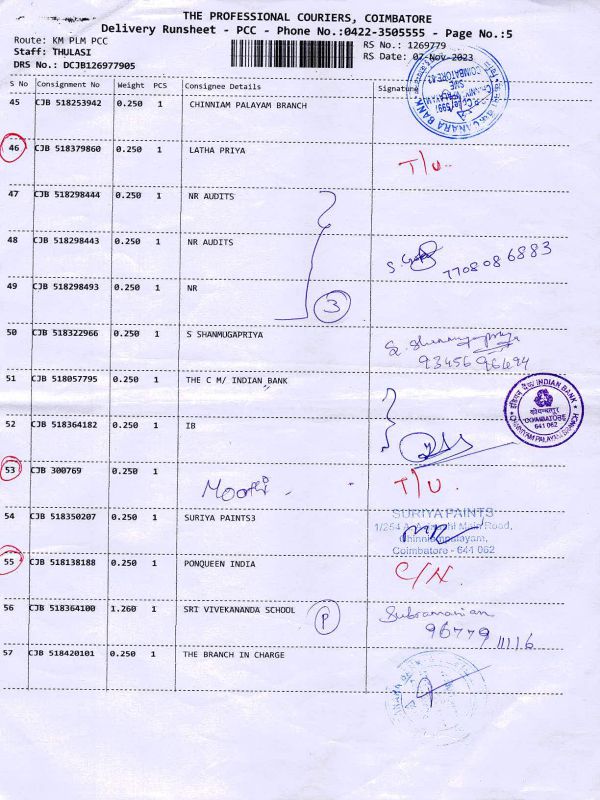 THE PROFESSIONAL COURIERS, COIMBATORE
Delivery Runsheet - PCC - Phone No.:0422-3505555 - Page No.:5
Route: KM PLM PCC
RS No.: 1269779
Staff: THULASI
RS Date: 07-Nov-2023
DRS No.: DCJB126977905
S No Consignment No Weight PCS Consignee Details Signature
45 CJB 518253942 0.250 1 CHINNIAM PALAYAM BRANCH
CANARA BANK
46 CJB 518379860 0.250 1 LATHA PRIYA T/U
47 CJB 518298444 0.250 1 NR AUDITS
48 CJB 518298443 0.250 1 NR AUDITS
7708086883
49 CJB 518298493 0.250 1 NR
3
50 CJB 518322966 0.250 1 S SHANMUGAPRIYA S. Shanmugapriya
9345696494
51 CJB 518057795 0.250 1 THE C M/ INDIAN BANK
INDIAN BANK
कोयम्बत्तूर
COIMBATORE
641 062
CHINNIYAM PALAYAM BRANCH
52 CJB 518364182 0.250 1 IB
53 CJB 300769 0.250 1 Moorthi T/U.
54 CJB 518350207 0.250 1 SURIYA PAINTS3
SURIYA PAINTS
Main Road,
Chinniampalayam,
Coimbatore - 641 062
55 CJB 518138188 0.250 1 PONQUEEN INDIA C/N.
56 CJB 518364100 1.260 1 SRI VIVEKANANDA SCHOOL P Subramanian
9677911116
57 CJB 518420101 0.250 1 THE BRANCH IN CHARGE